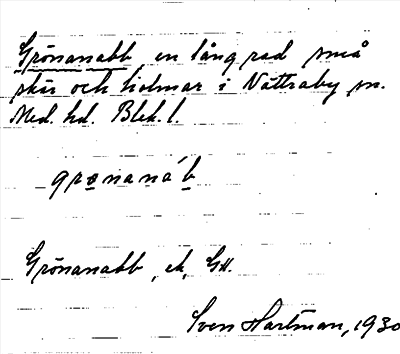 Grönanabb en lång rad små
skär och holmar i Nättraby sn.
Med. hd. Blek. l.
grønaná'b
Grönanabb, ek, GK.
Sven Hartman, 1930